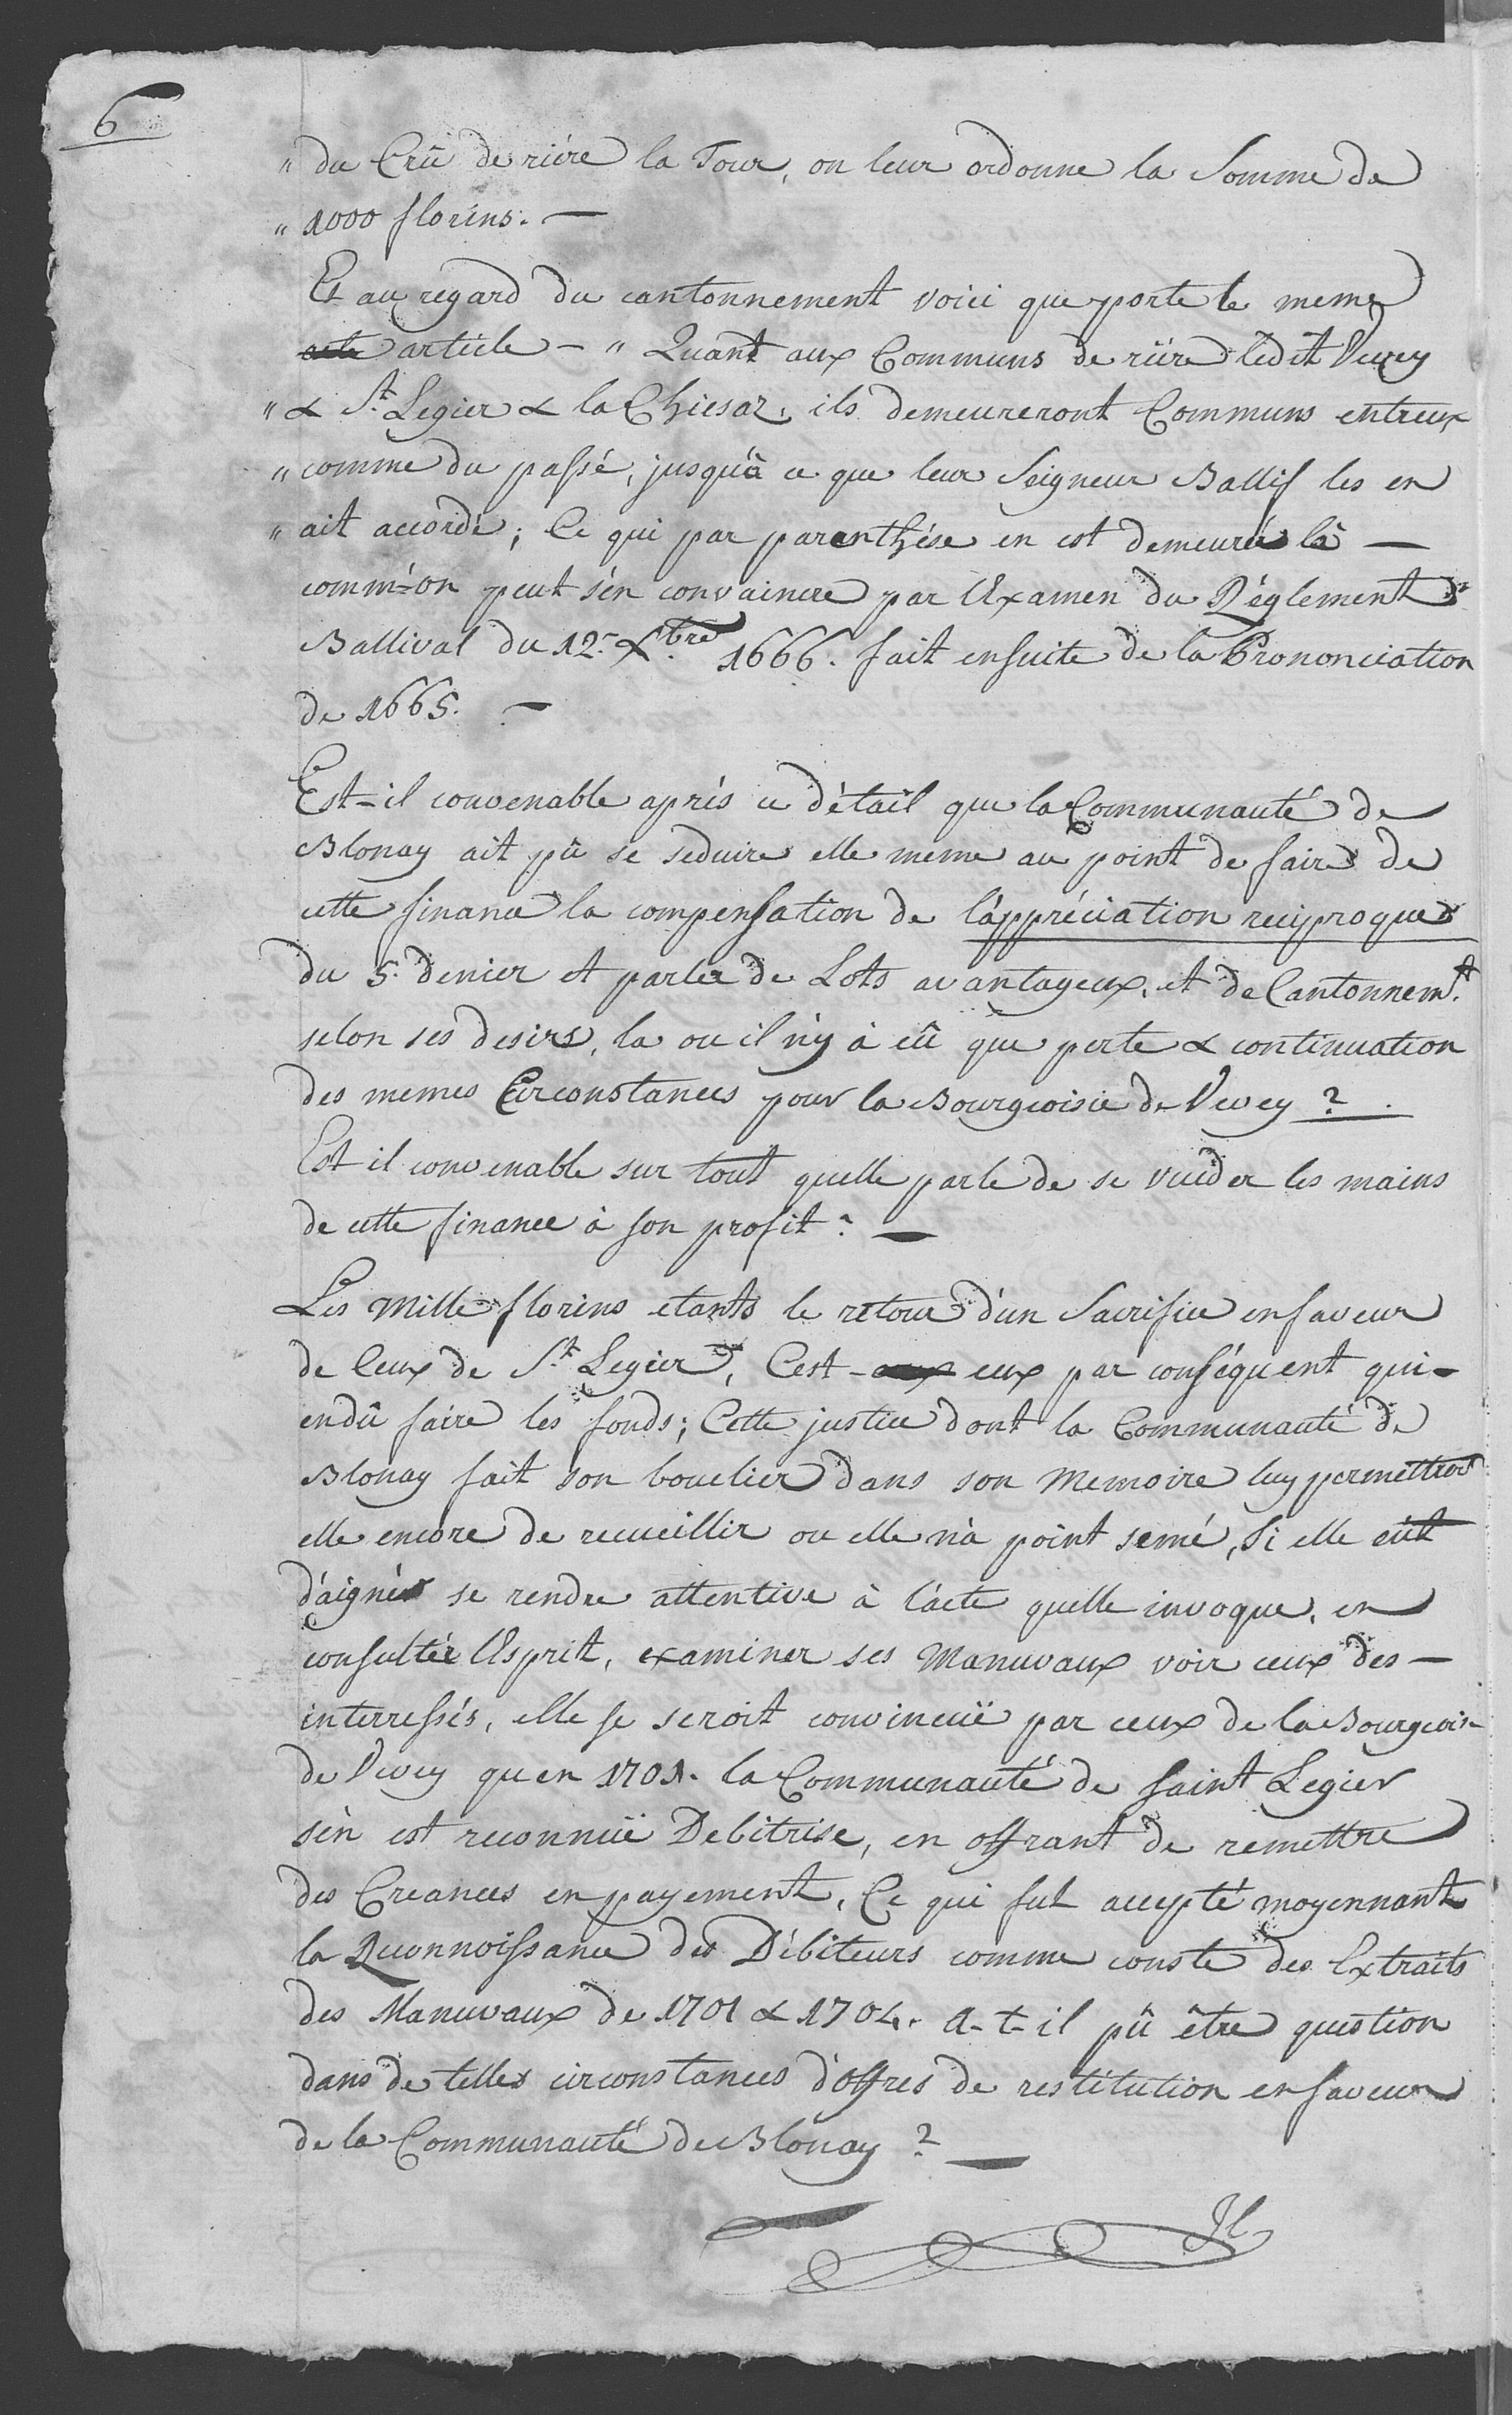 6
" du Crû de riére la Tour, on leur ordonne la Somme de
" 1000 florins. —
Et au regard du cantonnement voici que porte le meme
acte article – " Quant aux Communs de riére ledit Vevey
" & St. Legier & la Chiesaz, ils demeureront Communs entreux
" comme du passé, jusqu'à ce que leur Seigneur Ballif les en
" ait accordé; Ce qui par parenthése en est demeuré là —
comm'on peut s'en convaincre par l'Examen du Réglement
Ballival du 12e. Xbre. 1666. fait ensuite de la Prononciation
de 1665. —
Est-il convenable aprés ce détail que la Communauté de
Blonay ait pû se seduire elle meme au point de faire de
cette finance la compensation de l'appréciation reciproque
du 5e. denier et parler de Lots avantageux, et de Cantonnemt.
selon ses desirs, la ou il n'y à eû que perte & continuation
des memes Circonstances pour la Bourgeoisie de Vevey ? .
Est il convenable sur tout quelle parle de se vuider les mains
de cette finance à son profit ? —
Les Mille florins etants le retour d'un Sacrifice en faveur
de Ceux de St. Legier, C'est - aux eux par conséquent qui -
en dû faire les fonds; Cette justice dont la Communauté de
Blonay fait son bouclier dans son Memoire luy permettra
elle encore de recueillir ou elle n'à point semé, Si elle eût
d'aigner se rendre attentive à l'acte quelle invoque, en
consulter l'Esprit, examiner ses Manuvaux voir ceux des —
interressés, elle se seroit convincuë par ceux de la Bourgeois-
de Vevey qu'en 1701. la Communauté de Saint Legier
s'en est reconnuë Debitrise, en offrant de remettre
des Creances en payement, Ce qui fut accepté moyennant
la Reconnoissance des Débiteurs comme conste des Extraits
des Manuvaux de 1701 & 1704. A-t-il pû être question
dans de telles circonstances d'offres de restitution en faveur
de la Communauté de Blonay ? —